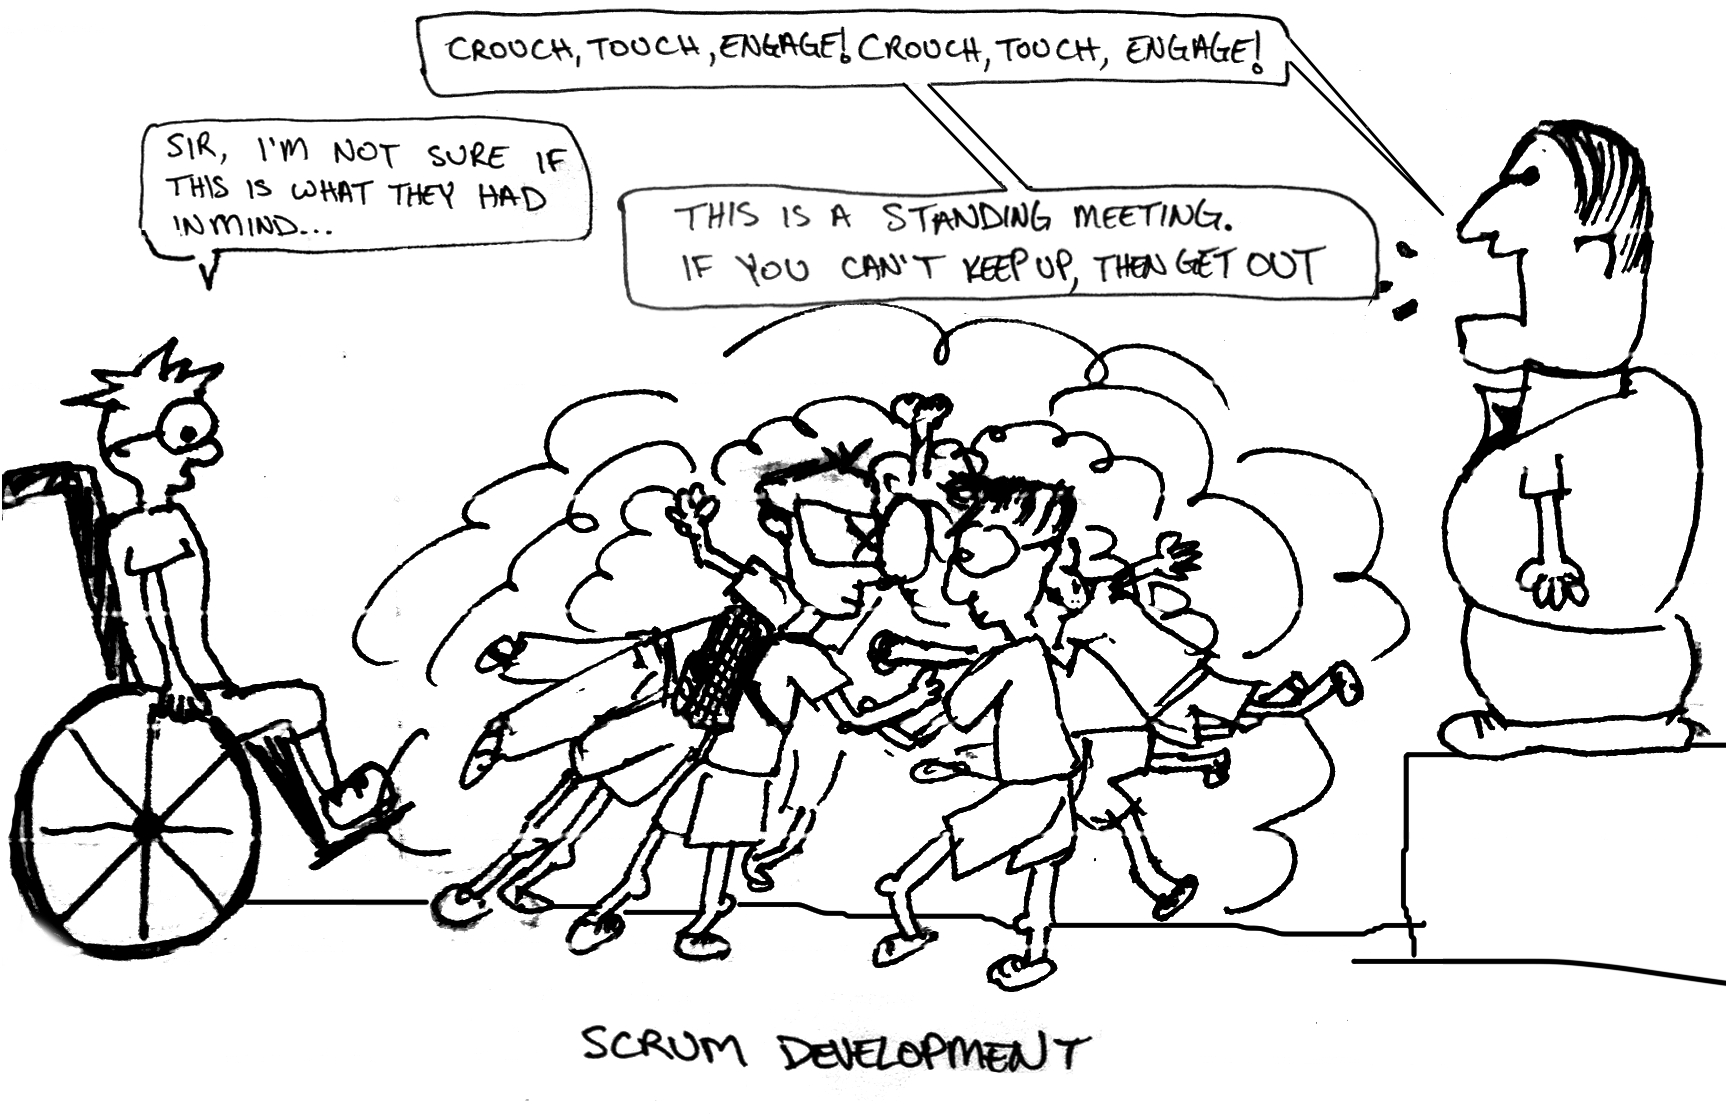 CROUCH, TOUCH, ENGAGE! CROUCH, TOUCH, ENGAGE!
SIR, I'M NOT SURE IF
THIS IS WHAT THEY HAD
IN MIND...
THIS IS A STANDING MEETING.
IF YOU CAN'T KEEP UP, THEN GET OUT
SCRUM DEVELOPMENT